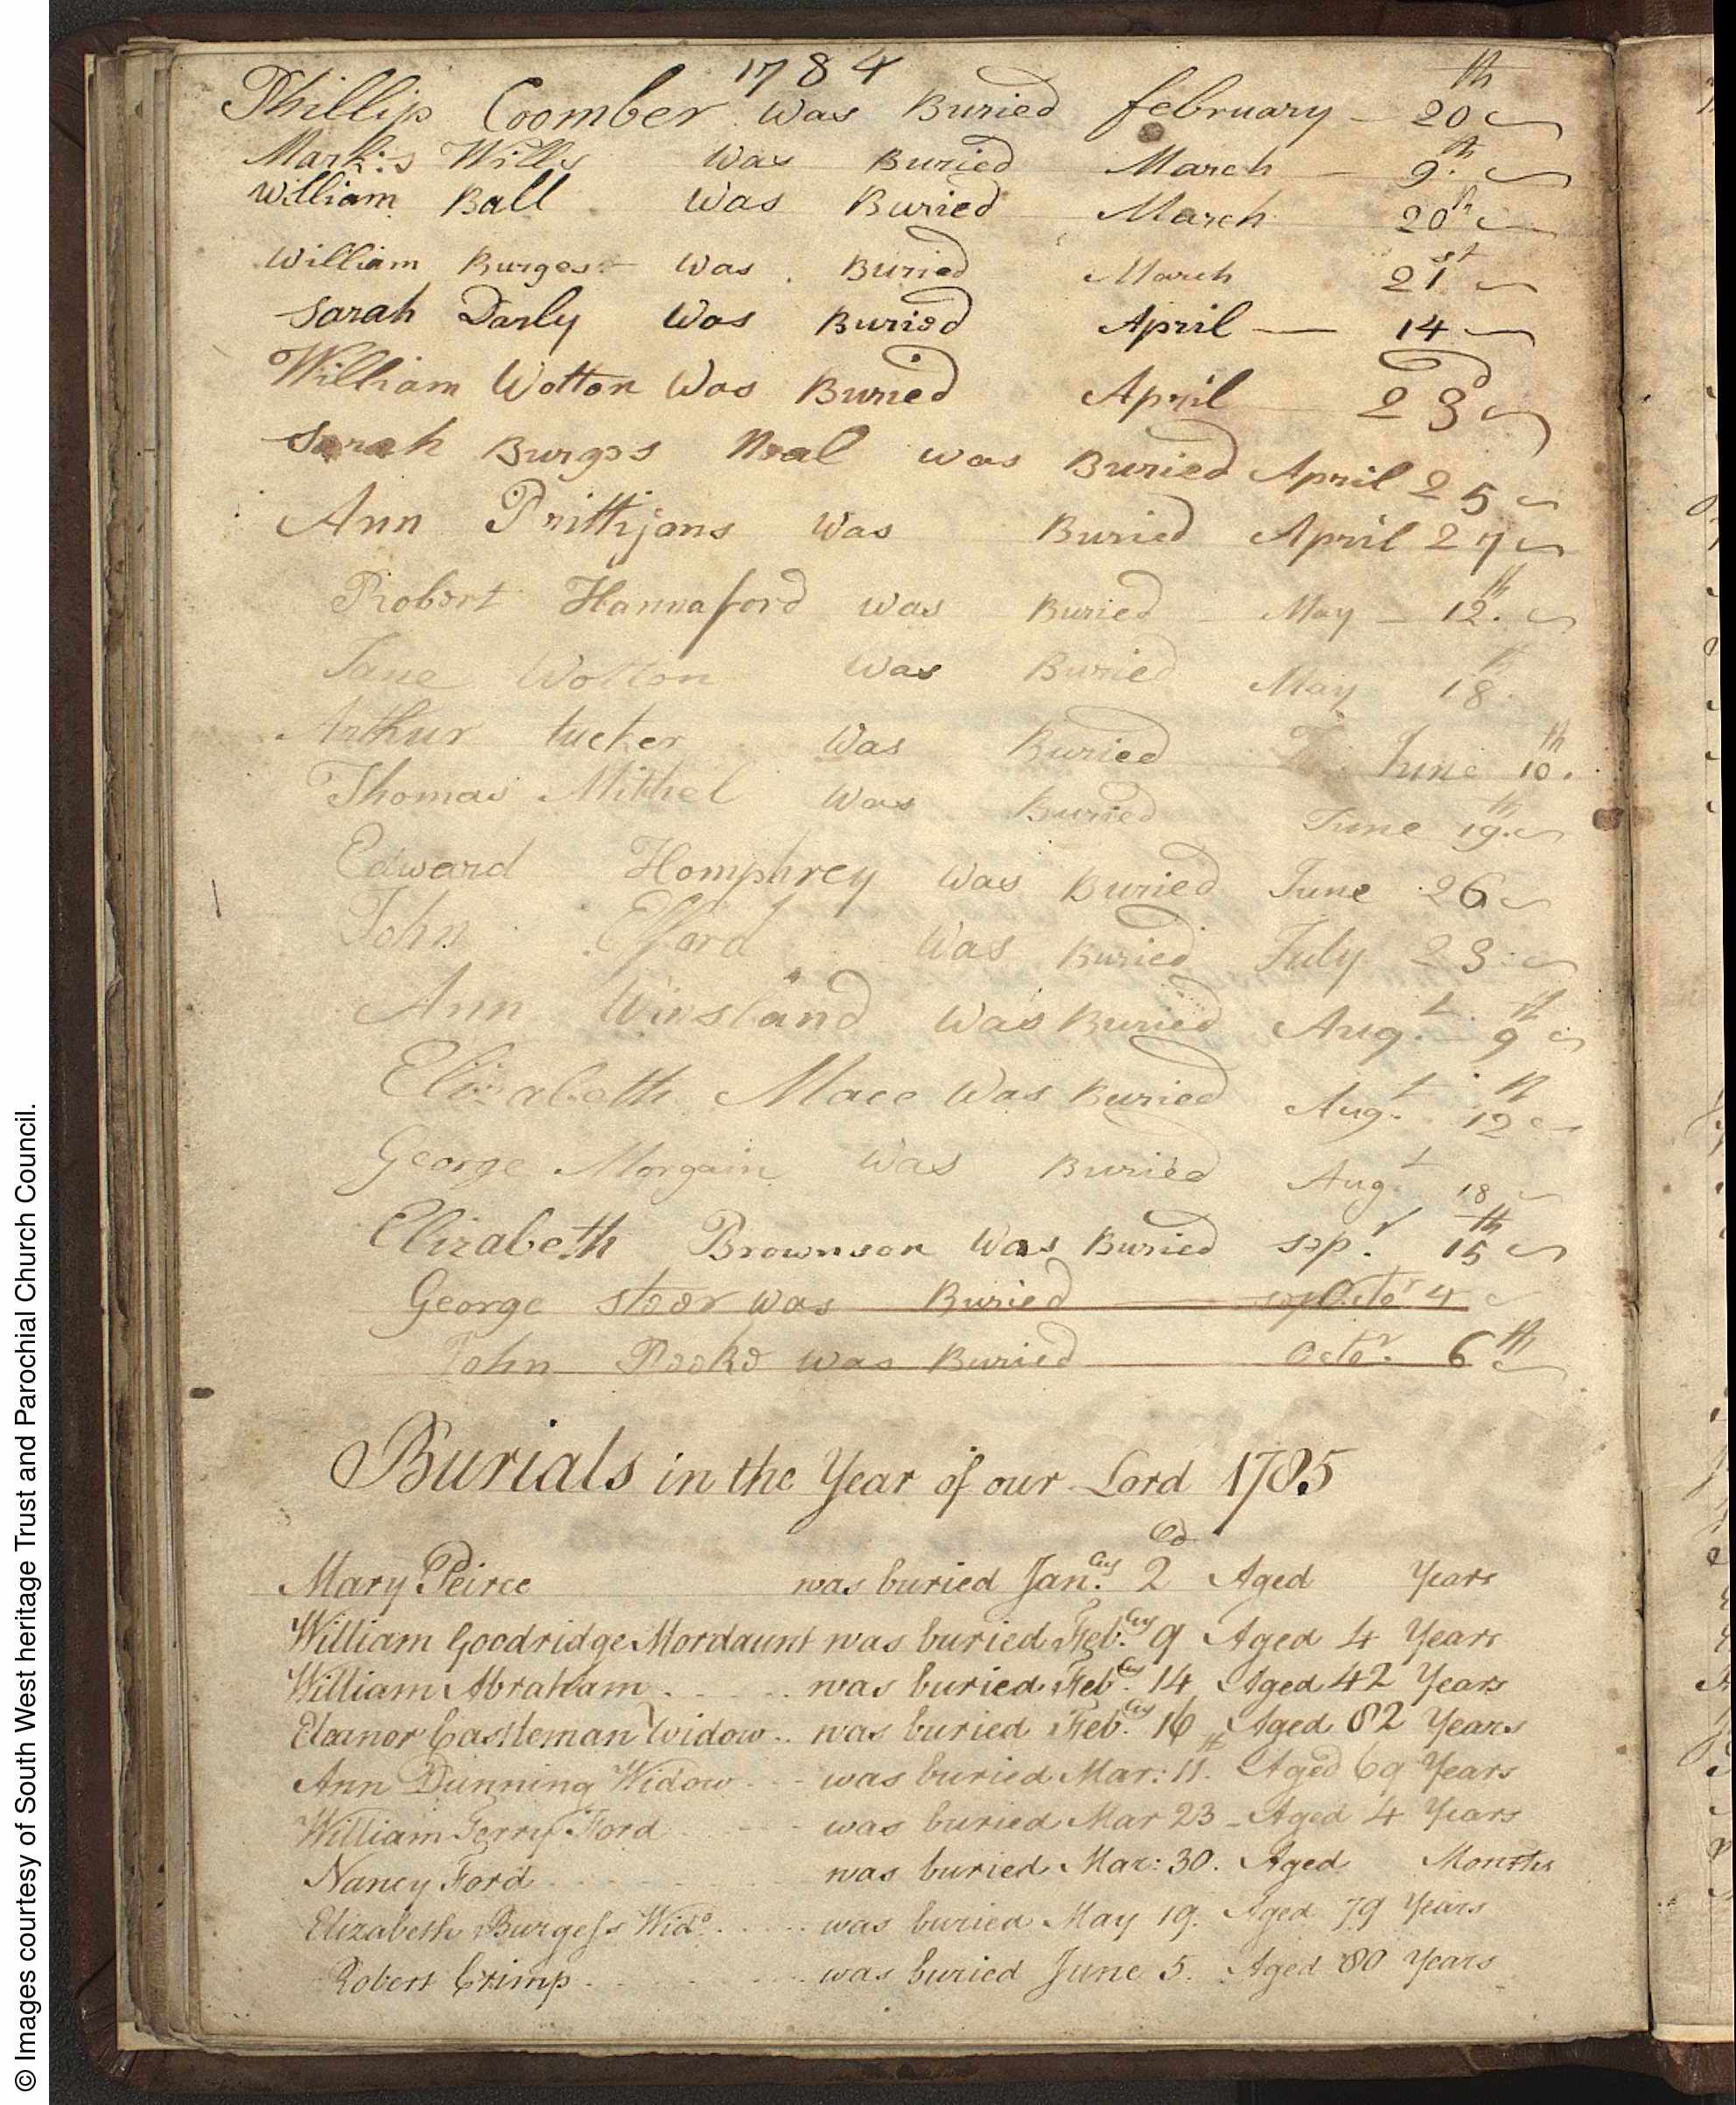 1784
Phillip Coomber was Buried february 20th
Mark:s Wills was Buried March 9th
William Ball was Buried March 20th
William Burges was Buried March 21st
Sarah Darly was Buried April 14
William Wotton was Buried April 23
Sarah Burges Neal was Buried April 25
Ann Prittijans was Buried April 27
Robert Hannaford was Buried May 12th
Jane Wotton was Buried May 18th
Arthur tucker was Buried June 10th.
Thomas Mithel was Buried June 19th
Edward Homphrey was Buried June 26
John Efford was Buried July 23
Ann Winsland was Buried Augt. 9th
Elizabeth Mace was Buried Augt. 12th
George Morgain was Buried Augt. 18
Elizabeth Brownson was Buried sepr. 15th
George steer was Buried Octor 4
John was Buried Octor. 6th
Burials in the Year of our Lord 1785
Mary Peirce was buried Jan.ry 2d Aged Years
William Goodridge Mordaunt was buried Feb.ry 9 Aged 4 Years
William Abraham was buried Feb.ry 14 Aged 42 Years
Eleanor Castleman Widow was buried Feb.ry 16 Aged 82 Years
Ann Dunning Widow was buried Mar: 11. Aged 69 Years
William Terry Ford was buried Mar 23 Aged 4 Years
Nancy Ford was buried Mar: 30. Aged Months
Elizabeth Burgess Wido. was buried May 19. Aged 79 Years
Robert Crimp was buried June 5. Aged 80 Years
© Images courtesy of South West heritage Trust and Parochial Church Council.